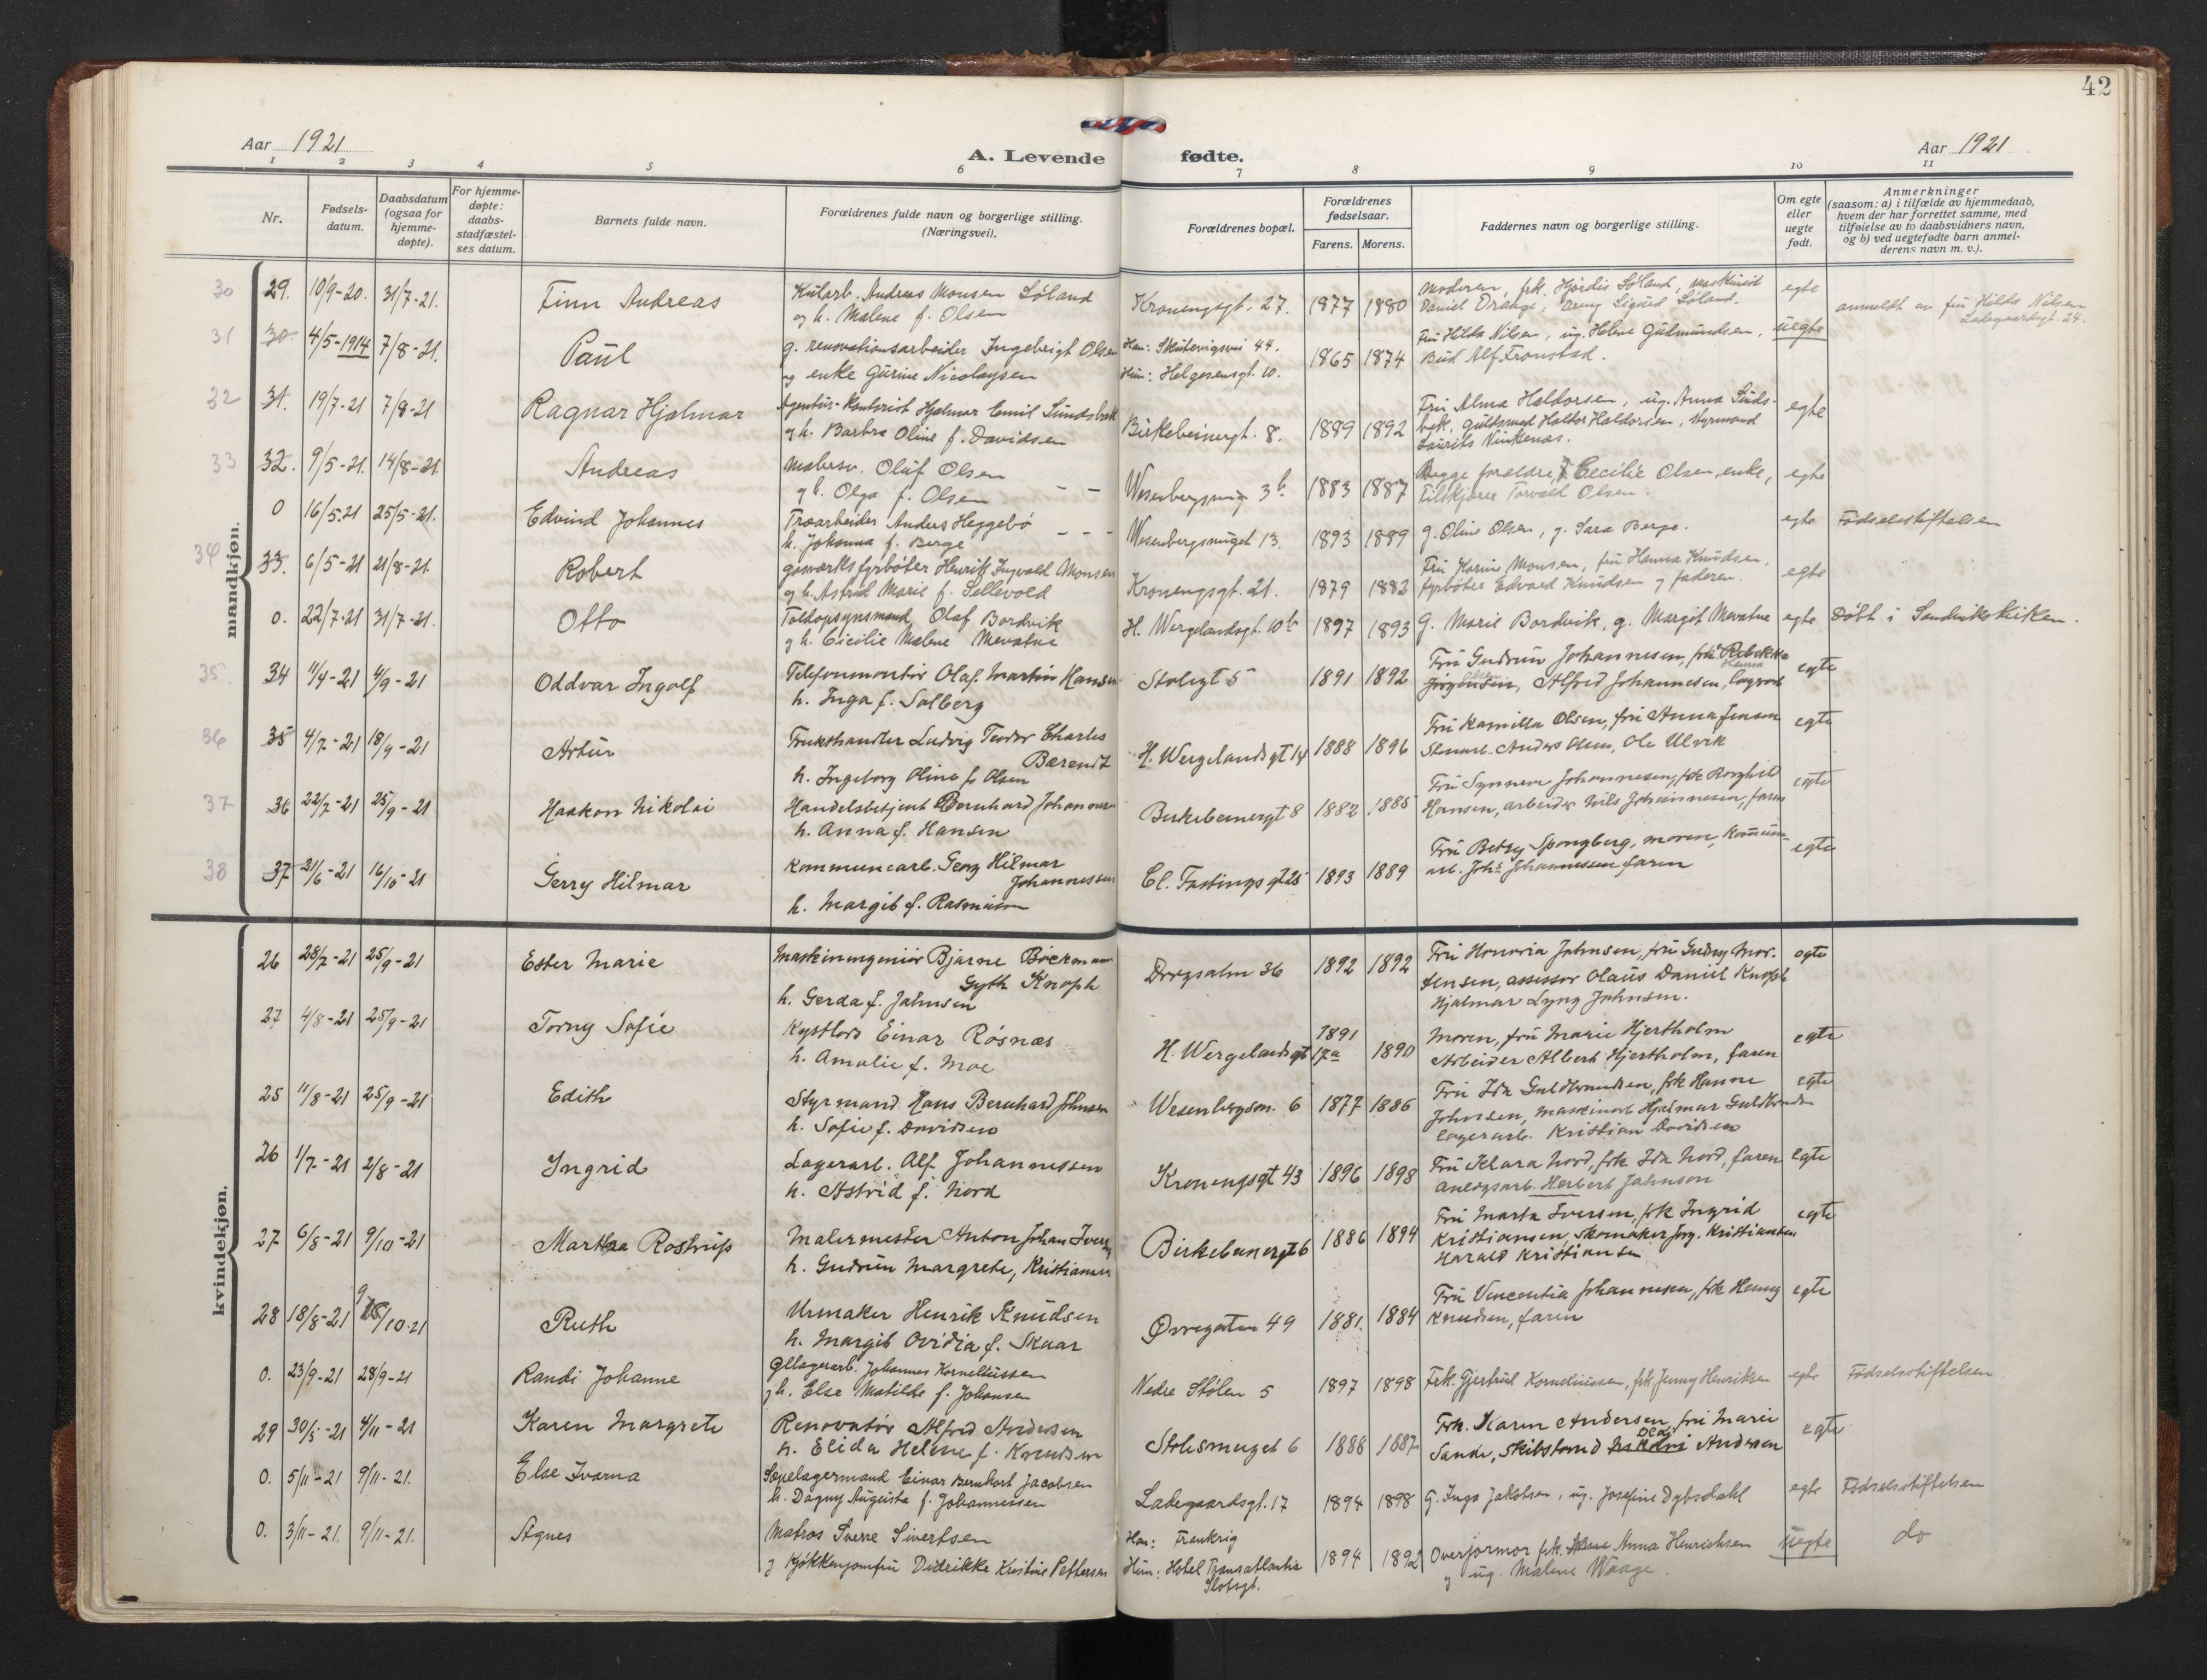 42
Aar 1921
A. Levende fødte.
Aar 1921
1 2 3 4 5 6 7 8 9 10 11
Nr.
Fødsels-
datum.
Daabsdatum
(ogsaa for
hjemme-
døpte).
For hjemme-
døpte:
daabs-
stadfæstel-
ses datum.
Barnets fulde navn.
Forældrenes fulde navn og borgerlige stilling.
(Næringsvei).
Forældrenes bopæl.
Forældrenes
fødselsaar.
Farens. Morens.
Faddernes navn og borgerlige stilling.
Om egte
eller
uegte
født.
Anmerkninger
(saasom: a) i tilfælde av hjemmedaab,
hvem der har forrettet samme, med
tilføielse av to daabsvidners navn,
og b) ved uegtefødte barn anmel-
derens navn m. v.).
mandkjøn.
30 29. 10/9-20. 31/7-21. Finn Andreas
Kularb. Andreas Monsen Løland
og h. Malene f. Olsen
Kronengsgt. 27. 1877 1880
Moderen, frk. Hjørdis Løland, maskinist
Daniel Drange, dreng Sigurd Løland.
egte
31 30 4/5-1914 7/8-21. Paul
g. renovationsarbeider Ingebrigt Olsen
og enke Gurine Nicolaysen
Han: Skuteviksvei 44.
Hun: Helgesensgt. 10.
1865 1874
Fru Hilda Nilsen, ug. Helene Gudmundsen,
Bud Alf Fronstad.
uegte
anmeldt av fru Hilda Nilsen
Ladegaardsgt. 24.
32 31. 19/7-21 7/8-21 Ragnar Hjalmar
Agentur-Kontorist Hjalmar Emil Sundsbak
og h. Barbra Oline f. Davidsen
Birkebeinergt. 8. 1889 1892
Fru Alma Haldorsen, ug. Anna Sunds-
bak, guldsmed Haldor Haldorsen, styrmand
Laurits Vinkenes.
egte
33 32. 9/5-21. 14/8-21. Andreas
Malersv. Oluf Olsen
og h. Olga f. Olsen
Wesenbergsmug 3b 1883 1887
Begge foreldre, Cecilie Olsen enke,
Filskjærer Torvald Olsen.
egte
0 16/5.21 25/5-21. Edvind Johannes
Træarbeider Anders Heggebø
h. Johanna f. Berge
Wesenbergsmuget 13. 1893 1889
g. Oline Olsen, g. Sara Berge.
egte Fødselsstiftelsen
34 33. 6/5-21 21/8-21. Robert
gasværksfyrbøter Henrik Ingvald Monsen
og h. Astrid Marie f. Sellevold
Kronengsgt. 21. 1879 1882
Fru Karine Monsen, fru Hanna Knudsen,
fyrbøter Edvard Knudsen og faderen.
egte
0. 22/7-21 31/7-21. Otto
Toldopsynsmand Olaf Bordvik
og h. Cicilie Malene Mevatne
H. Wergelandsgt. 10b 1897 1893
G. Marie Bordvik, g. Margit Mevatne
egte Døbt i Sandvikskirken.
35 34 11/4-21 4/9-21 Oddvar Ingolf
Telefonmontør Olaf Martin Hansen
h. Inga f. Solberg
Stølegt 5 1891 1892
Fru Gudrun Johannesen, frk. Rebekka
Hanna
Jørgensen, Alfred Johannesen, lagerarb
egte
36 35 4/7-21 18/9-21 Artur
Frukthandler Ludvig Teodor Charles
Bærendt
h. Ingeborg Oline f. Olsen
H. Wergelandsgt 14 1888 1896
Fru Kamilla Olsen, fru Anna Jensen
Stenarb. Anders Olsen, Ole Ulvik
egte
37 36 22/7-21 25/9-21 Haakon Nikolai
Handelsbetjent Bernhard Johannes
h. Anna f. Hansen
Birkebeinergt 8 1882 1885
Fru Synneve Johannesen, frk Borghild
Hansen, arbeider Nils Johannesen, faren
egte
38 37 21/6-21 16/10-21 Gerry Hilmar
Kommunearb. Georg Hilmar
Johannessen
h. Margit f. Rasmussen
Cl. Fastings gt 25 1893 1889
Fru Betzy Spongberg, moren, Kommune-
arb. Johs Johannessen faren
egte
kvindekjøn.
26 28/7-21 25/9-21 Ester Marie
Maskiningeniør Bjarne Böckmann
Gyth Knoph
h. Gerda f. Jahnsen
Dregsalm 36 1892 1892
Fru Honoria Jahnsen, fru Gudny Mor-
tensen, assessor Olaus Daniel Knoph
Hjalmar Lyng Jahnsen.
egte
27 4/8-21 25/9-21 Torny Sofie
Kystlods Einar Røsnæs
h. Amalie f. Moe
H. Wergelandsgt 17a 1891 1890
Moren, fru Marie Hjertholm
Arbeider Albert Hjertholm, faren
egte
25 11/8-21 25/9-21 Edith
Styrmand Hans Bernhard Johnsen
h. Sofie f. Davidsen
Wesenbergsm. 6 1877 1886
Fru Ida Guldbrandsen, frk Hanne
Johnsen, maskinarb Hjalmar Guldbrandsen
lagerarb. Kristian Davidsen
egte
26 1/7-21 2/8-21 Ingrid
Lagerarb. Alf Johannessen
h. Astrid f. Nord
Kronengsgt 43 1896 1898
Fru Klara Nord, frk Ida Nord, faren
anlægsarb. Herbert Jahnson
egte
27 6/8-21 9/10-21 Martha Rostrup
Malermester Anton Johan Iversen
h. Gudrun Margrete, Kristiansen
Birkebeinergt 6 1886 1894
Fru Marta Iversen, frk Ingrid
Kristiansen, skomaker Jørg. Kristiansen
Harald Kristiansen
egte
28 18/8-21 9/10-21 Ruth
Urmaker Henrik Knudsen
h. Margit Ovidia f. Skaar
Øvregaten 49 1881. 1884
Fru Vincentia Johannesen, frk Henny
Knudsen, faren
egte
0. 23/9-21 28/9-21 Randi Johanne
Øllagerarb. Johannes Korneliussen
og h. Else Matilde f. Johansen
Nedre Stølen 5 1897 1898
Frk. Gjertrud Korneliussen, frk Jenny Henriksen
egte Fødselsstiftelsen
29 30/5-21 4/11-21 Karen Margrete
Renovatør Alfred Andersen
h. Elida Helene f. Knudsen
Stølesmuget 6 1888 1887
Frk. Karen Andersen, fru Marie
Sande, Skibstømd Andersen
egte
0. 5/11-21 9/11-21. Else Ivarna
Sæpelagermand Einar Bernhart Jacobsen
h. Dagny Augusta f. Johannessen
Ladegaardsgt. 17 1894 1898
G. Inga Jakobsen, ug. Josefine Dybsdahl
egte Fødselsstiftelsen
0. 3/11-21. 9/11-21. Agnes
Matros Sverre Sivertsen
og Kjøkkenjomfru Didrikke Kristine Pettersen
Han: Frankrig
Hun: Hotel Transatlantic
Slotsgt.
1894 1892
Overjormor frk. Anna Henrichsen
og ug. Malene Waage.
uegte do